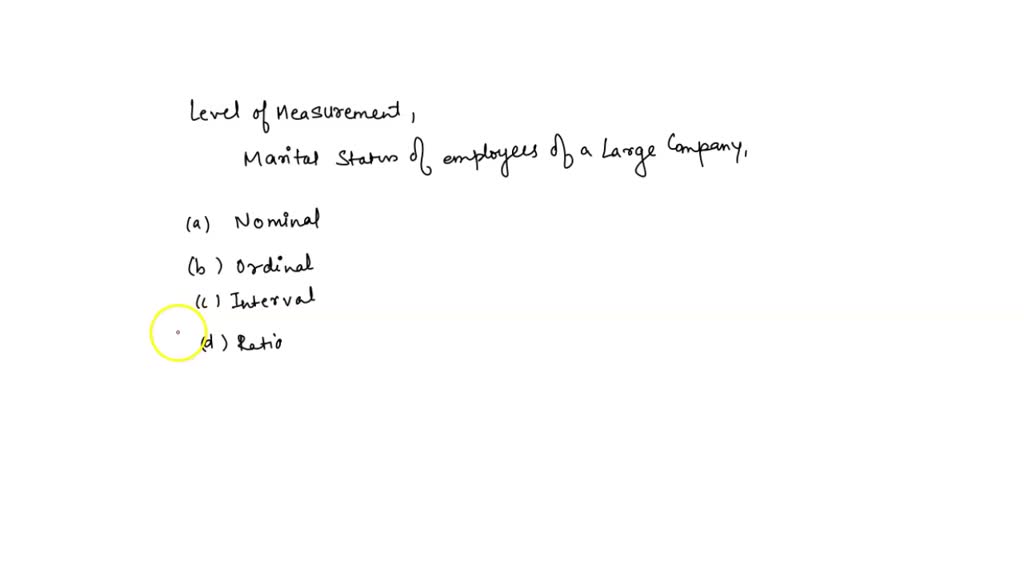 Level of Measurement,
Marital Status of employees of a Large Company.
(a) Nominal
(b) Ordinal
(c) Interval
(d) Ratio